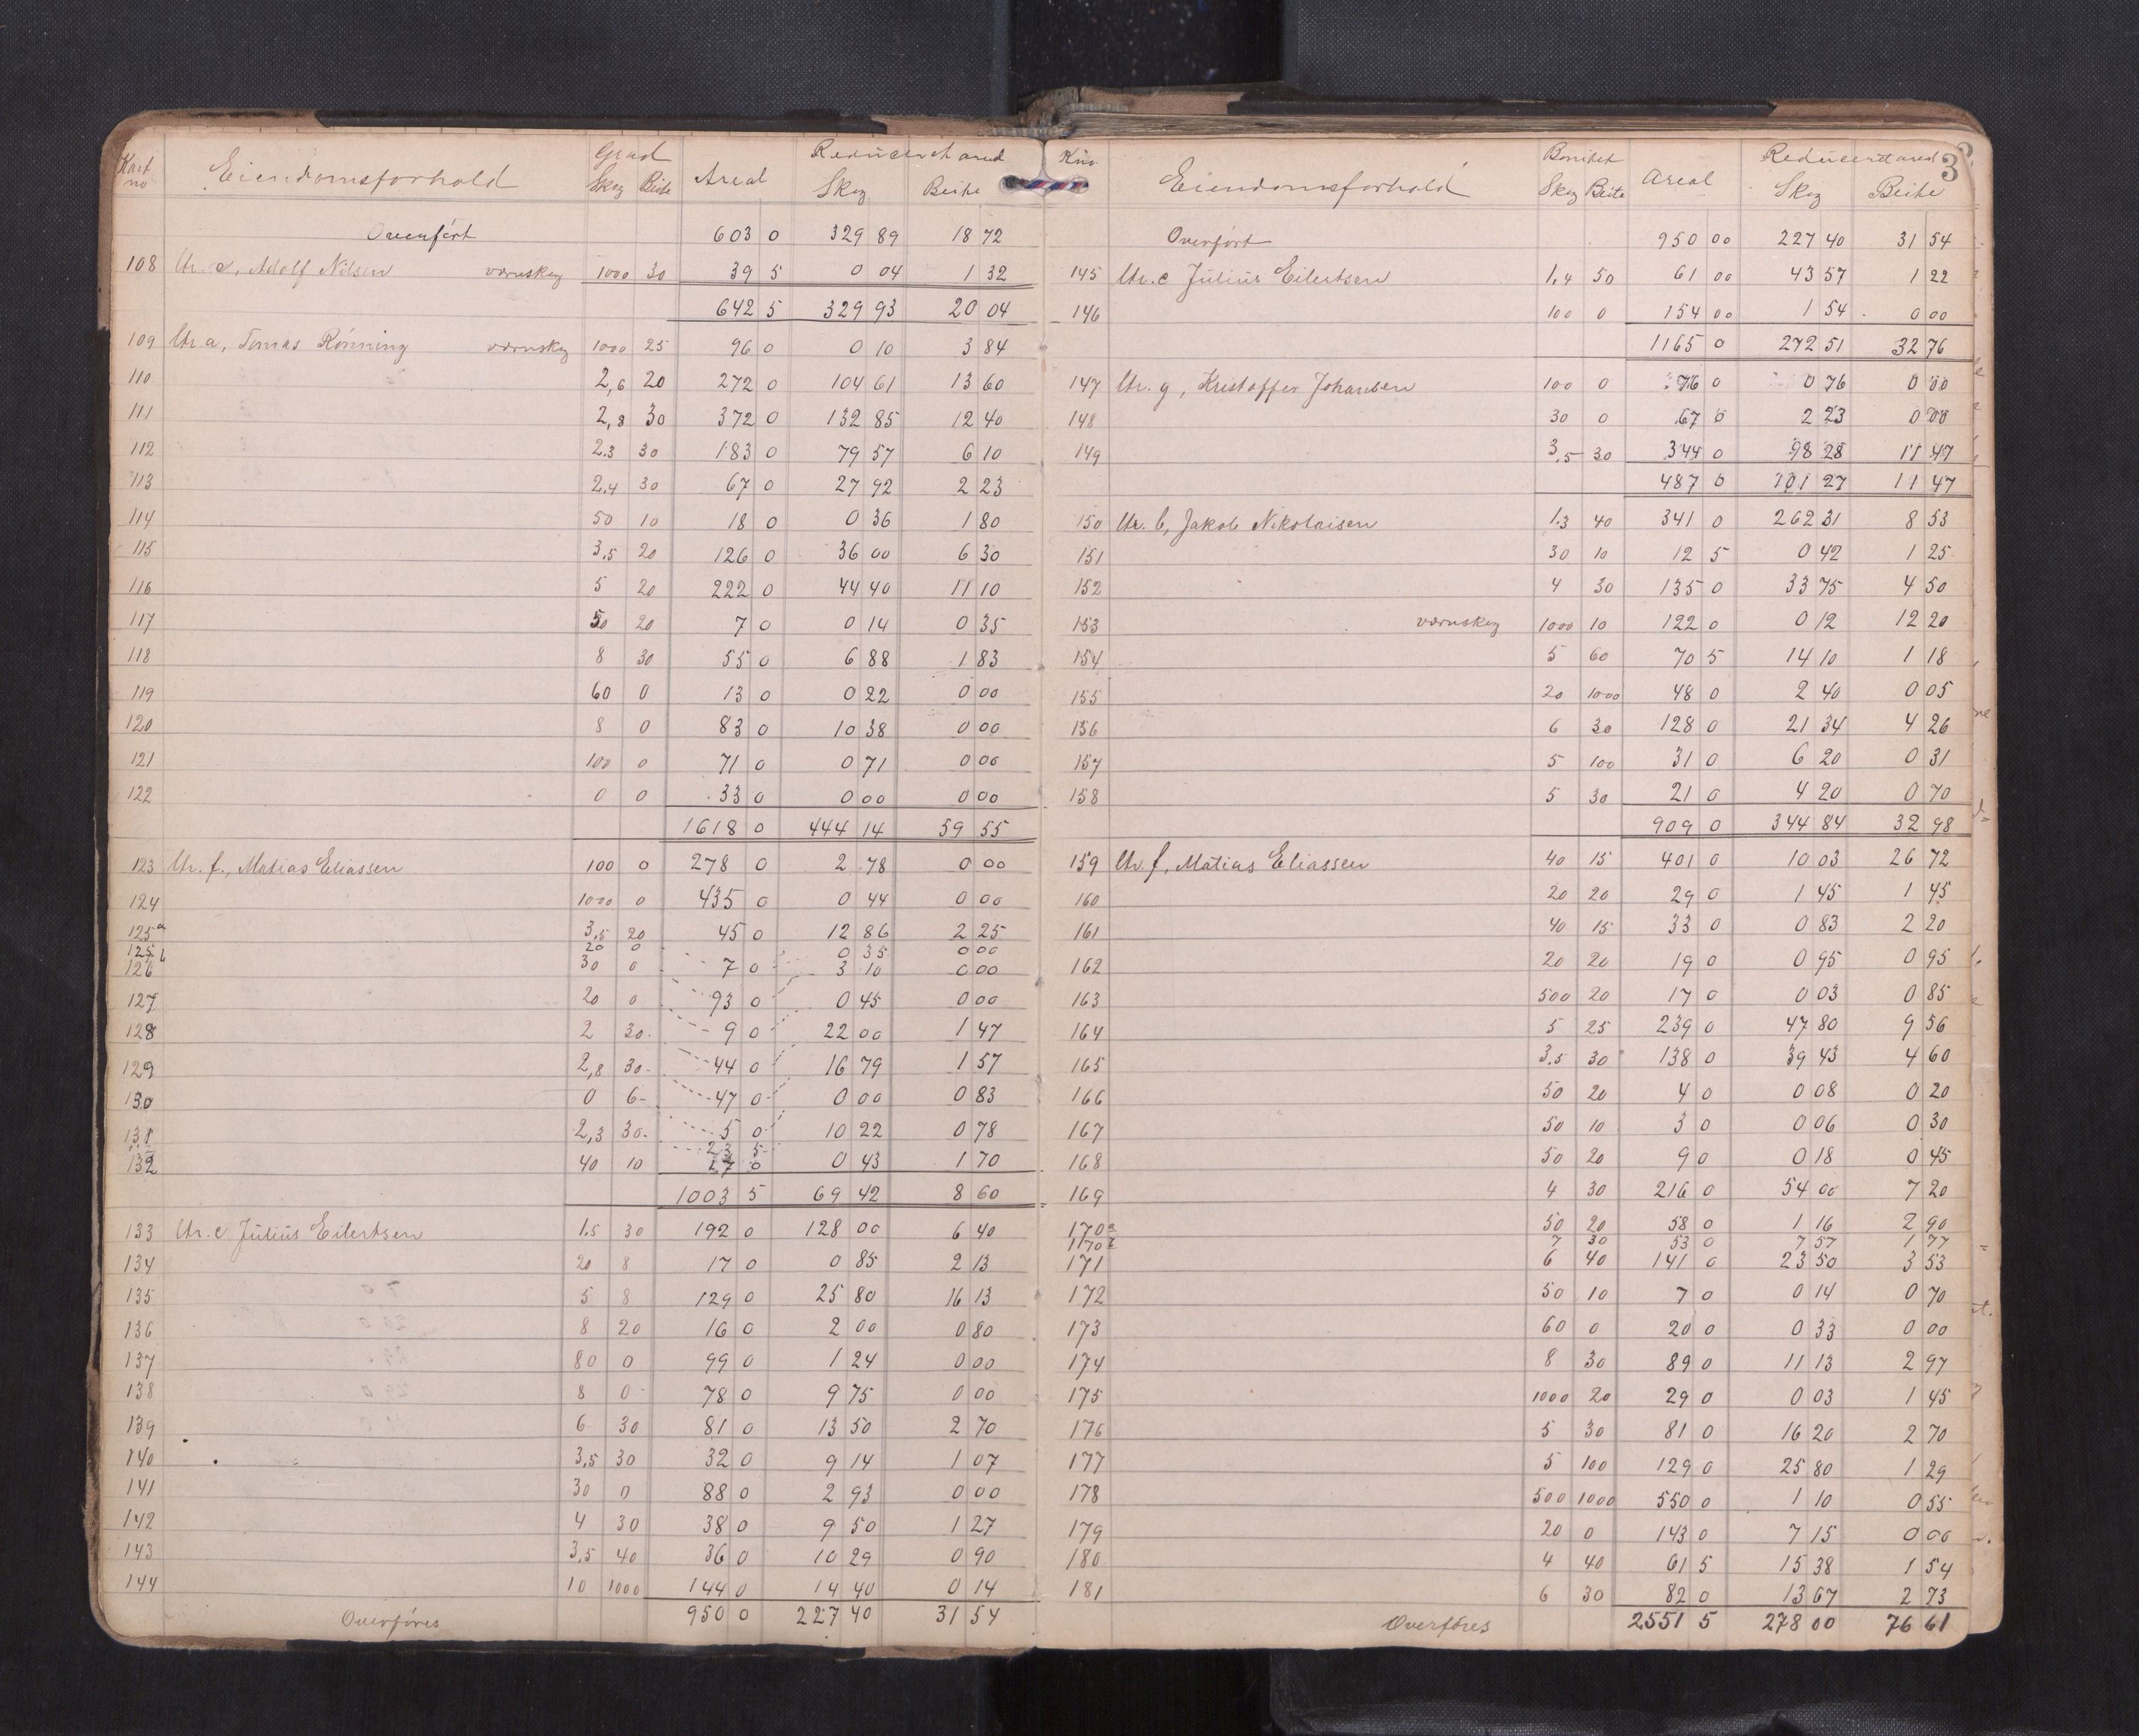 Kart no Eiendomsforhold Grad Skog Beite Areal Reduceret areal Skog Beite
Overført 603 0 329 89 18 72
108 Ur. e, Adolf Nilsen vernskog 1000 30 39 5 0 04 1 32
642 5 329 93 20 04
109 Ur. a, Tomas Rønning vernskog 1000 25 96 0 0 10 3 84
110 2,6 20 272 0 104 61 13 60
111 2,8 30 372 0 132 85 12 40
112 2.3 30 183 0 79 57 6 10
113 2,4 30 67 0 27 92 2 23
114 50 10 18 0 0 36 1 80
115 3,5 20 126 0 36 00 6 30
116 5 20 222 0 44 40 11 10
117 50 20 7 0 0 14 0 35
118 8 30 55 0 6 88 1 83
119 60 0 13 0 0 22 0 00
120 8 0 83 0 10 38 0 00
121 100 0 71 0 0 71 0 00
122 0 0 33 0 0 00 0 00
1618 0 444 14 59 55
123 Ur. f., Matias Eliassen 100 0 278 0 2 78 0 00
124 1000 0 435 0 0 44 0 00
125a 3,5 20 45 0 12 86 2 25
125b 20 0 0 35 0 00
126 30 0 7 0 3 10 0 00
127 20 0 93 0 0 45 0 00
128 2 30 9 0 22 00 1 47
129 2,8 30 44 0 16 79 1 57
130 0 6 47 0 0 00 0 83
131 2,3 30 5 0 10 22 0 78
23 5
132 40 10 17 0 0 43 1 70
1003 5 69 42 8 60
133 Ur. c Julius Eilertsen 1.5 30 192 0 128 00 6 40
134 20 8 17 0 0 85 2 13
135 5 8 129 0 25 80 16 13
136 8 20 16 0 2 00 0 80
137 80 0 99 0 1 24 0 00
138 8 0 78 0 9 75 0 00
139 6 30 81 0 13 50 2 70
140 3,5 30 32 0 9 14 1 07
141 30 0 88 0 2 93 0 00
142 4 30 38 0 9 50 1 27
143 3,5 40 36 0 10 29 0 90
144 10 1000 144 0 14 40 0 14
Overføres 950 0 227 40 31 54
3
K.no Eiendomsforhold Bonitet Skog Beite Areal Reduceret areal Skog Beite
Overført 950 00 227 40 31 54
145 Ur. c Julius Eilertsen 1,4 50 61 00 43 57 1 22
146 100 0 154 00 1 54 0 00
1165 0 272 51 32 76
147 Ur. g, Kristoffer Johansen 100 0 76 0 0 76 0 00
148 30 0 67 0 2 23 0 00
149 3,5 30 344 0 98 28 11 47
487 0 101 27 11 47
150 Ur. b, Jakob Nikolaisen 1.3 40 341 0 262 31 8 53
151 30 10 12 5 0 42 1 25
152 4 30 135 0 33 75 4 50
153 vernskog 1000 10 122 0 0 12 12 20
154 5 60 70 5 14 10 1 18
155 20 1000 48 0 2 40 0 05
156 6 30 128 0 21 34 4 26
157 5 100 31 0 6 20 0 31
158 5 30 21 0 4 20 0 70
909 0 344 84 32 98
159 Ur. f, Matias Eliassen 40 15 401 0 10 03 26 72
160 20 20 29 0 1 45 1 45
161 40 15 33 0 0 83 2 20
162 20 20 19 0 0 95 0 95
163 500 20 17 0 0 03 0 85
164 5 25 239 0 47 80 9 56
165 3.5 30 138 0 39 43 4 60
166 50 20 4 0 0 08 0 20
167 50 10 3 0 0 06 0 30
168 50 20 9 0 0 18 0 45
169 4 30 216 0 54 00 7 20
170a 50 20 58 0 1 16 2 90
170b 7 30 53 0 7 57 1 77
171 6 40 141 0 23 50 3 53
172 50 10 7 0 0 14 0 70
173 60 0 20 0 0 33 0 00
174 8 30 89 0 11 13 2 97
175 1000 20 29 0 0 03 1 45
176 5 30 81 0 16 20 2 70
177 5 100 129 0 25 80 1 29
178 500 1000 550 0 1 10 0 55
179 20 0 143 0 7 15 0 00
180 4 40 61 5 15 38 1 54
181 6 30 82 0 13 67 2 73
Overføres 2551 5 278 00 76 61